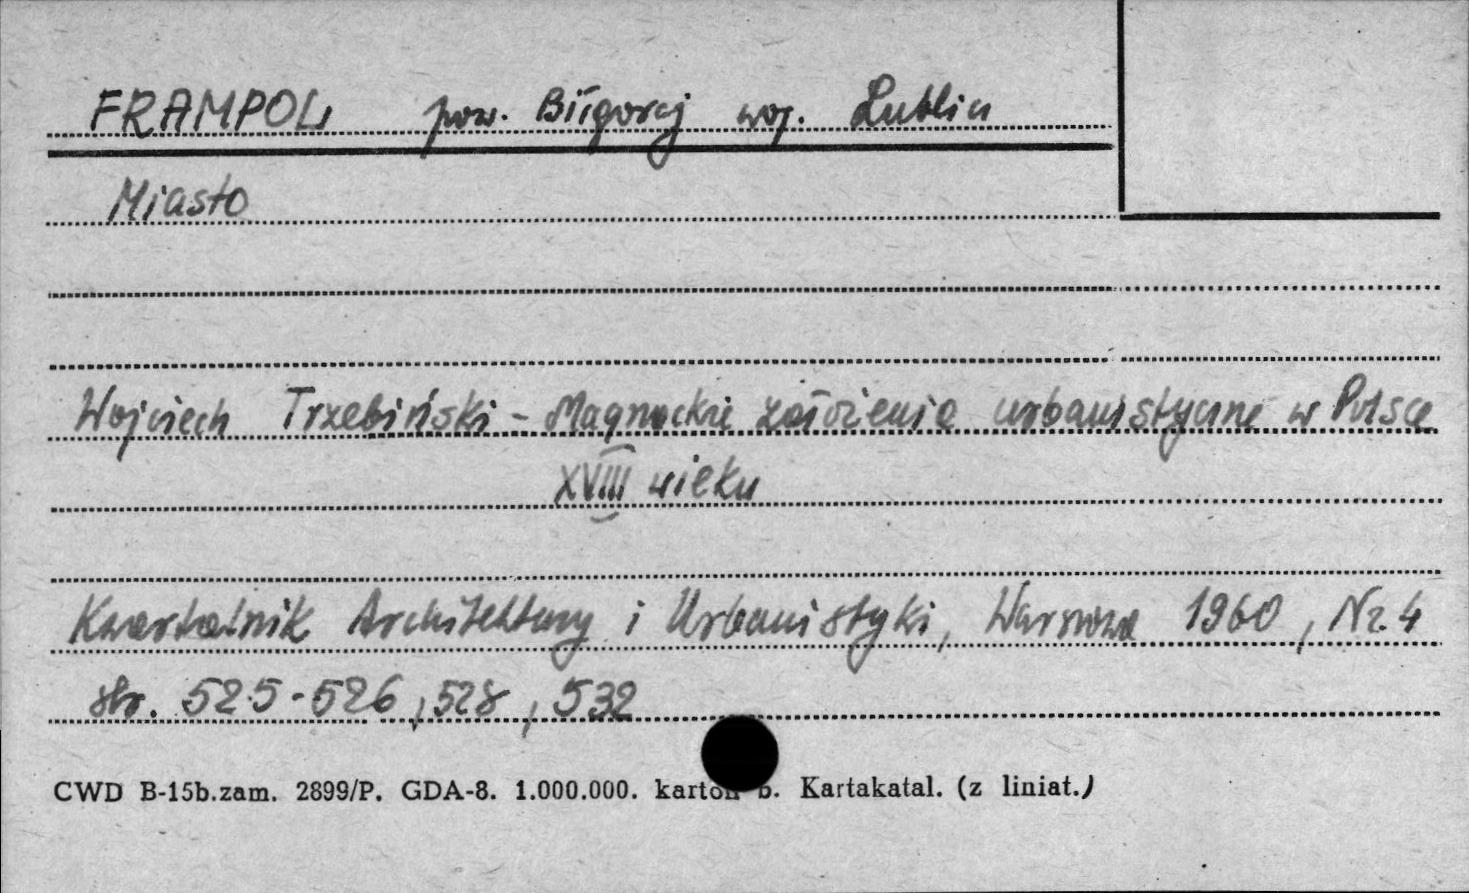 FRAMPOL pow. Biłgoraj woj. Lublin
Miasto
Wojciech Trzebiński - Magnackie założenia urbanistyczne w Polsce
XVIII wieku
Kwartalnik Architektury i Urbanistyki, Warszawa 1960, Nr. 4
str. 525-526, 528, 532
CWD B-15b.zam. 2899/P. GDA-8. 1.000.000. karton b. Kartakatal. (z liniat.)